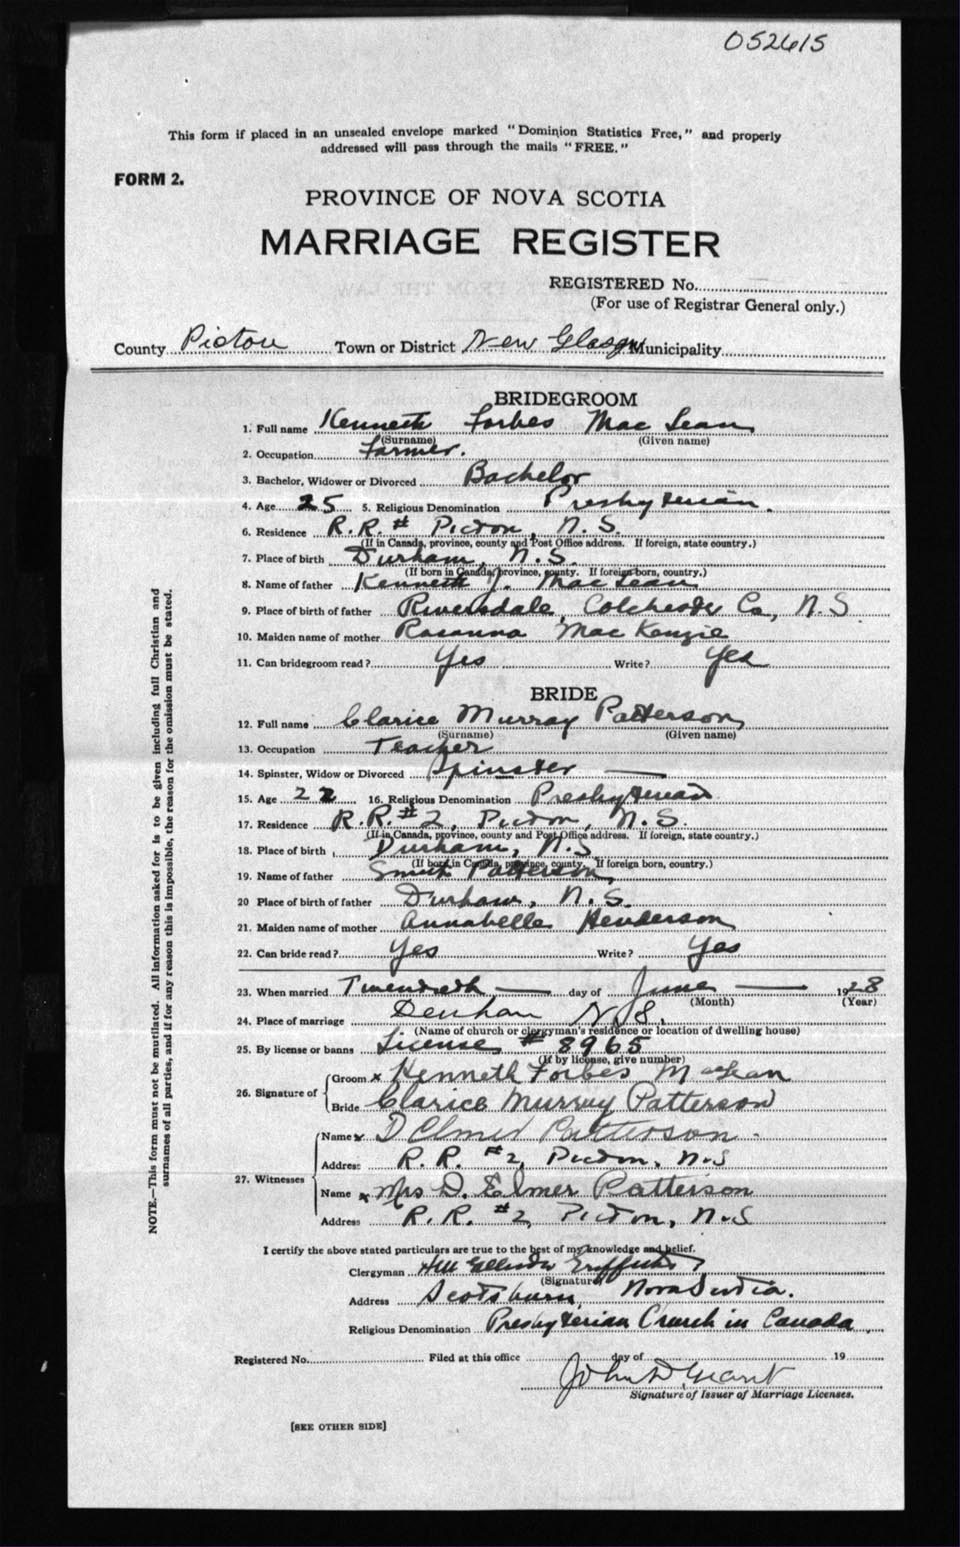 052615
This form if placed in an unsealed envelope marked "Dominion Statistics Free," and properly
addressed will pass through the mails "FREE."
FORM 2.
PROVINCE OF NOVA SCOTIA
MARRIAGE REGISTER
REGISTERED No.
(For use of Registrar General only.)
County Pictou Town or District New Glasgow Municipality
BRIDEGROOM
1. Full name Kenneth Forbes MacLean
(Surname) (Given name)
2. Occupation Farmer.
3. Bachelor, Widower or Divorced Bachelor
4. Age 25 5. Religious Denomination Presbyterian.
6. Residence R.R. # Pictou, N.S.
(If in Canada, province, county and Post Office address. If foreign, state country.)
7. Place of birth Durham, N.S.
(If born in Canada, province, county. If foreign born, country.)
8. Name of father Kenneth J. MacLean
9. Place of birth of father Riversdale, Colchester Co., N.S
10. Maiden name of mother Rosanna MacKenzie
11. Can bridegroom read? Yes Write? Yes
BRIDE
12. Full name Clarice Murray Patterson,
(Surname) (Given name)
13. Occupation Teacher
14. Spinster, Widow or Divorced Spinster
15. Age 22 16. Religious Denomination Presbyterian
17. Residence R.R. #2, Pictou, N.S.
(If in Canada, province, county and Post Office address. If foreign, state country.)
18. Place of birth Durham, N.S
(If born in Canada, province, county. If foreign born, country.)
19. Name of father Smith Patterson,
20 Place of birth of father Durham, N.S.
21. Maiden name of mother Annabelle Henderson
22. Can bride read? Yes Write? Yes
23. When married Twentieth day of June 1928
(Month) (Year)
24. Place of marriage Durham N.S.
(Name of church or clergyman's residence or location of dwelling house)
25. By license or banns License # 8965
(If by license, give number)
26. Signature of Groom x Kenneth Forbes MacLean
Bride Clarice Murray Patterson
27. Witnesses Name x D Elmer Patterson
Address R. R. #2, Pictou, N.S
Name x Mrs D. Elmer Patterson
Address R. R. #2, Pictou, N.S
I certify the above stated particulars are true to the best of my knowledge and belief.
Clergyman Griffiths
(Signature)
Address Scotsburn, Nova Scotia.
Religious Denomination Presbyterian Church in Canada
Registered No. Filed at this office day of 19
John D Grant
Signature of Issuer of Marriage Licenses.
[SEE OTHER SIDE]
NOTE.—This form must not be mutilated. All information asked for is to be given including full Christian and
surnames of all parties, and if for any reason this is impossible, the reason for the omission must be stated.